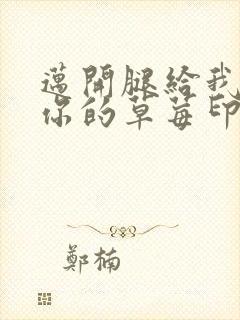 邁開腿給我
你的草莓印
鄭楠